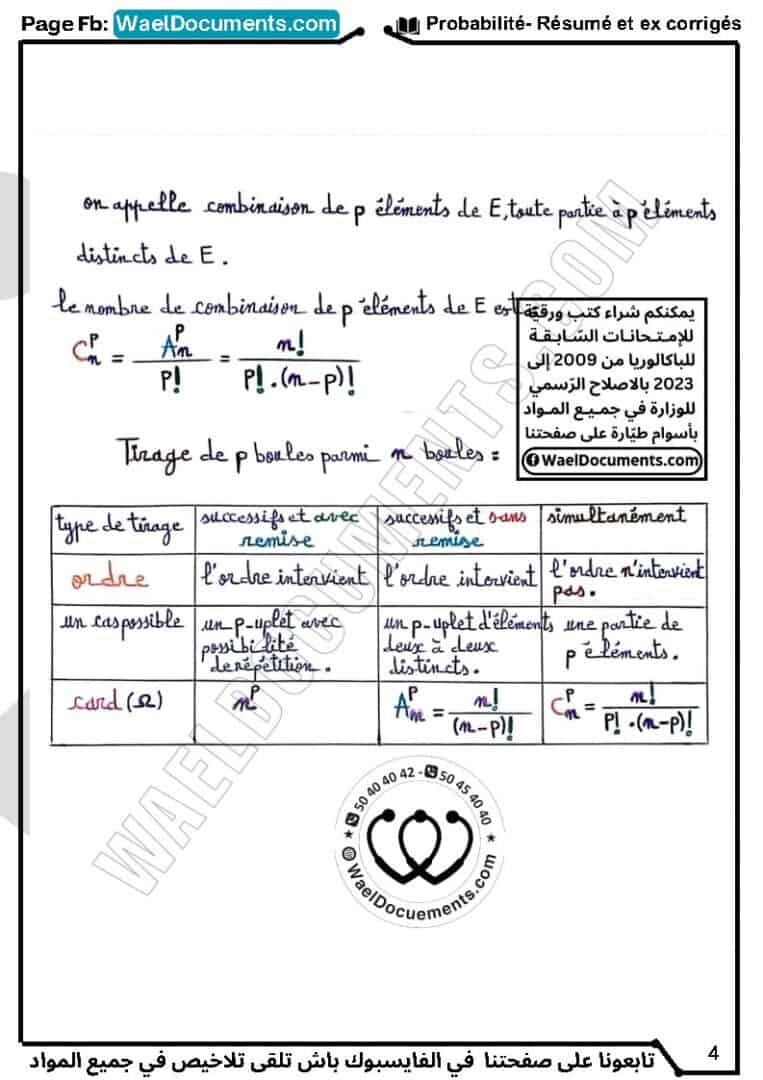 Page Fb: WaelDocuments.com
Probabilité- Résumé et ex corrigés
on appelle combinaison de p éléments de E, toute partie à p éléments
distincts de E.
le nombre de combinaison de p éléments de E est
C_n^p = A_n^p / P! = n! / P!.(n-p)!
يمكنكم شراء كتب ورقية
للإمتحانات السّابقة
للباكالوريا من 2009 إلى
2023 بالاصلاح الرّسمي
للوزارة في جميع المواد
بأسوام طيّارة على صفحتنا
WaelDocuments.com
Tirage de p boules parmi n boules =
type de tirage | successifs et avec remise | successifs et sans remise | simultanément
ordre | l'ordre intervient | l'ordre intervient | l'ordre n'intervient pas.
un cas possible | un p-uplet avec possibilité de répétition. | un p-uplet d'éléments deux à deux distincts. | une partie de p éléments.
card (Ω) | n^p | A_n^p = n! / (n-p)! | C_n^p = n! / P!.(n-p)!
50 40 40 42 - 50 45 40 40
WaelDocuements.com
WAELDOCUMENTS.COM
تابعونا على صفحتنا في الفايسبوك باش تلقى تلاخيص في جميع المواد
4